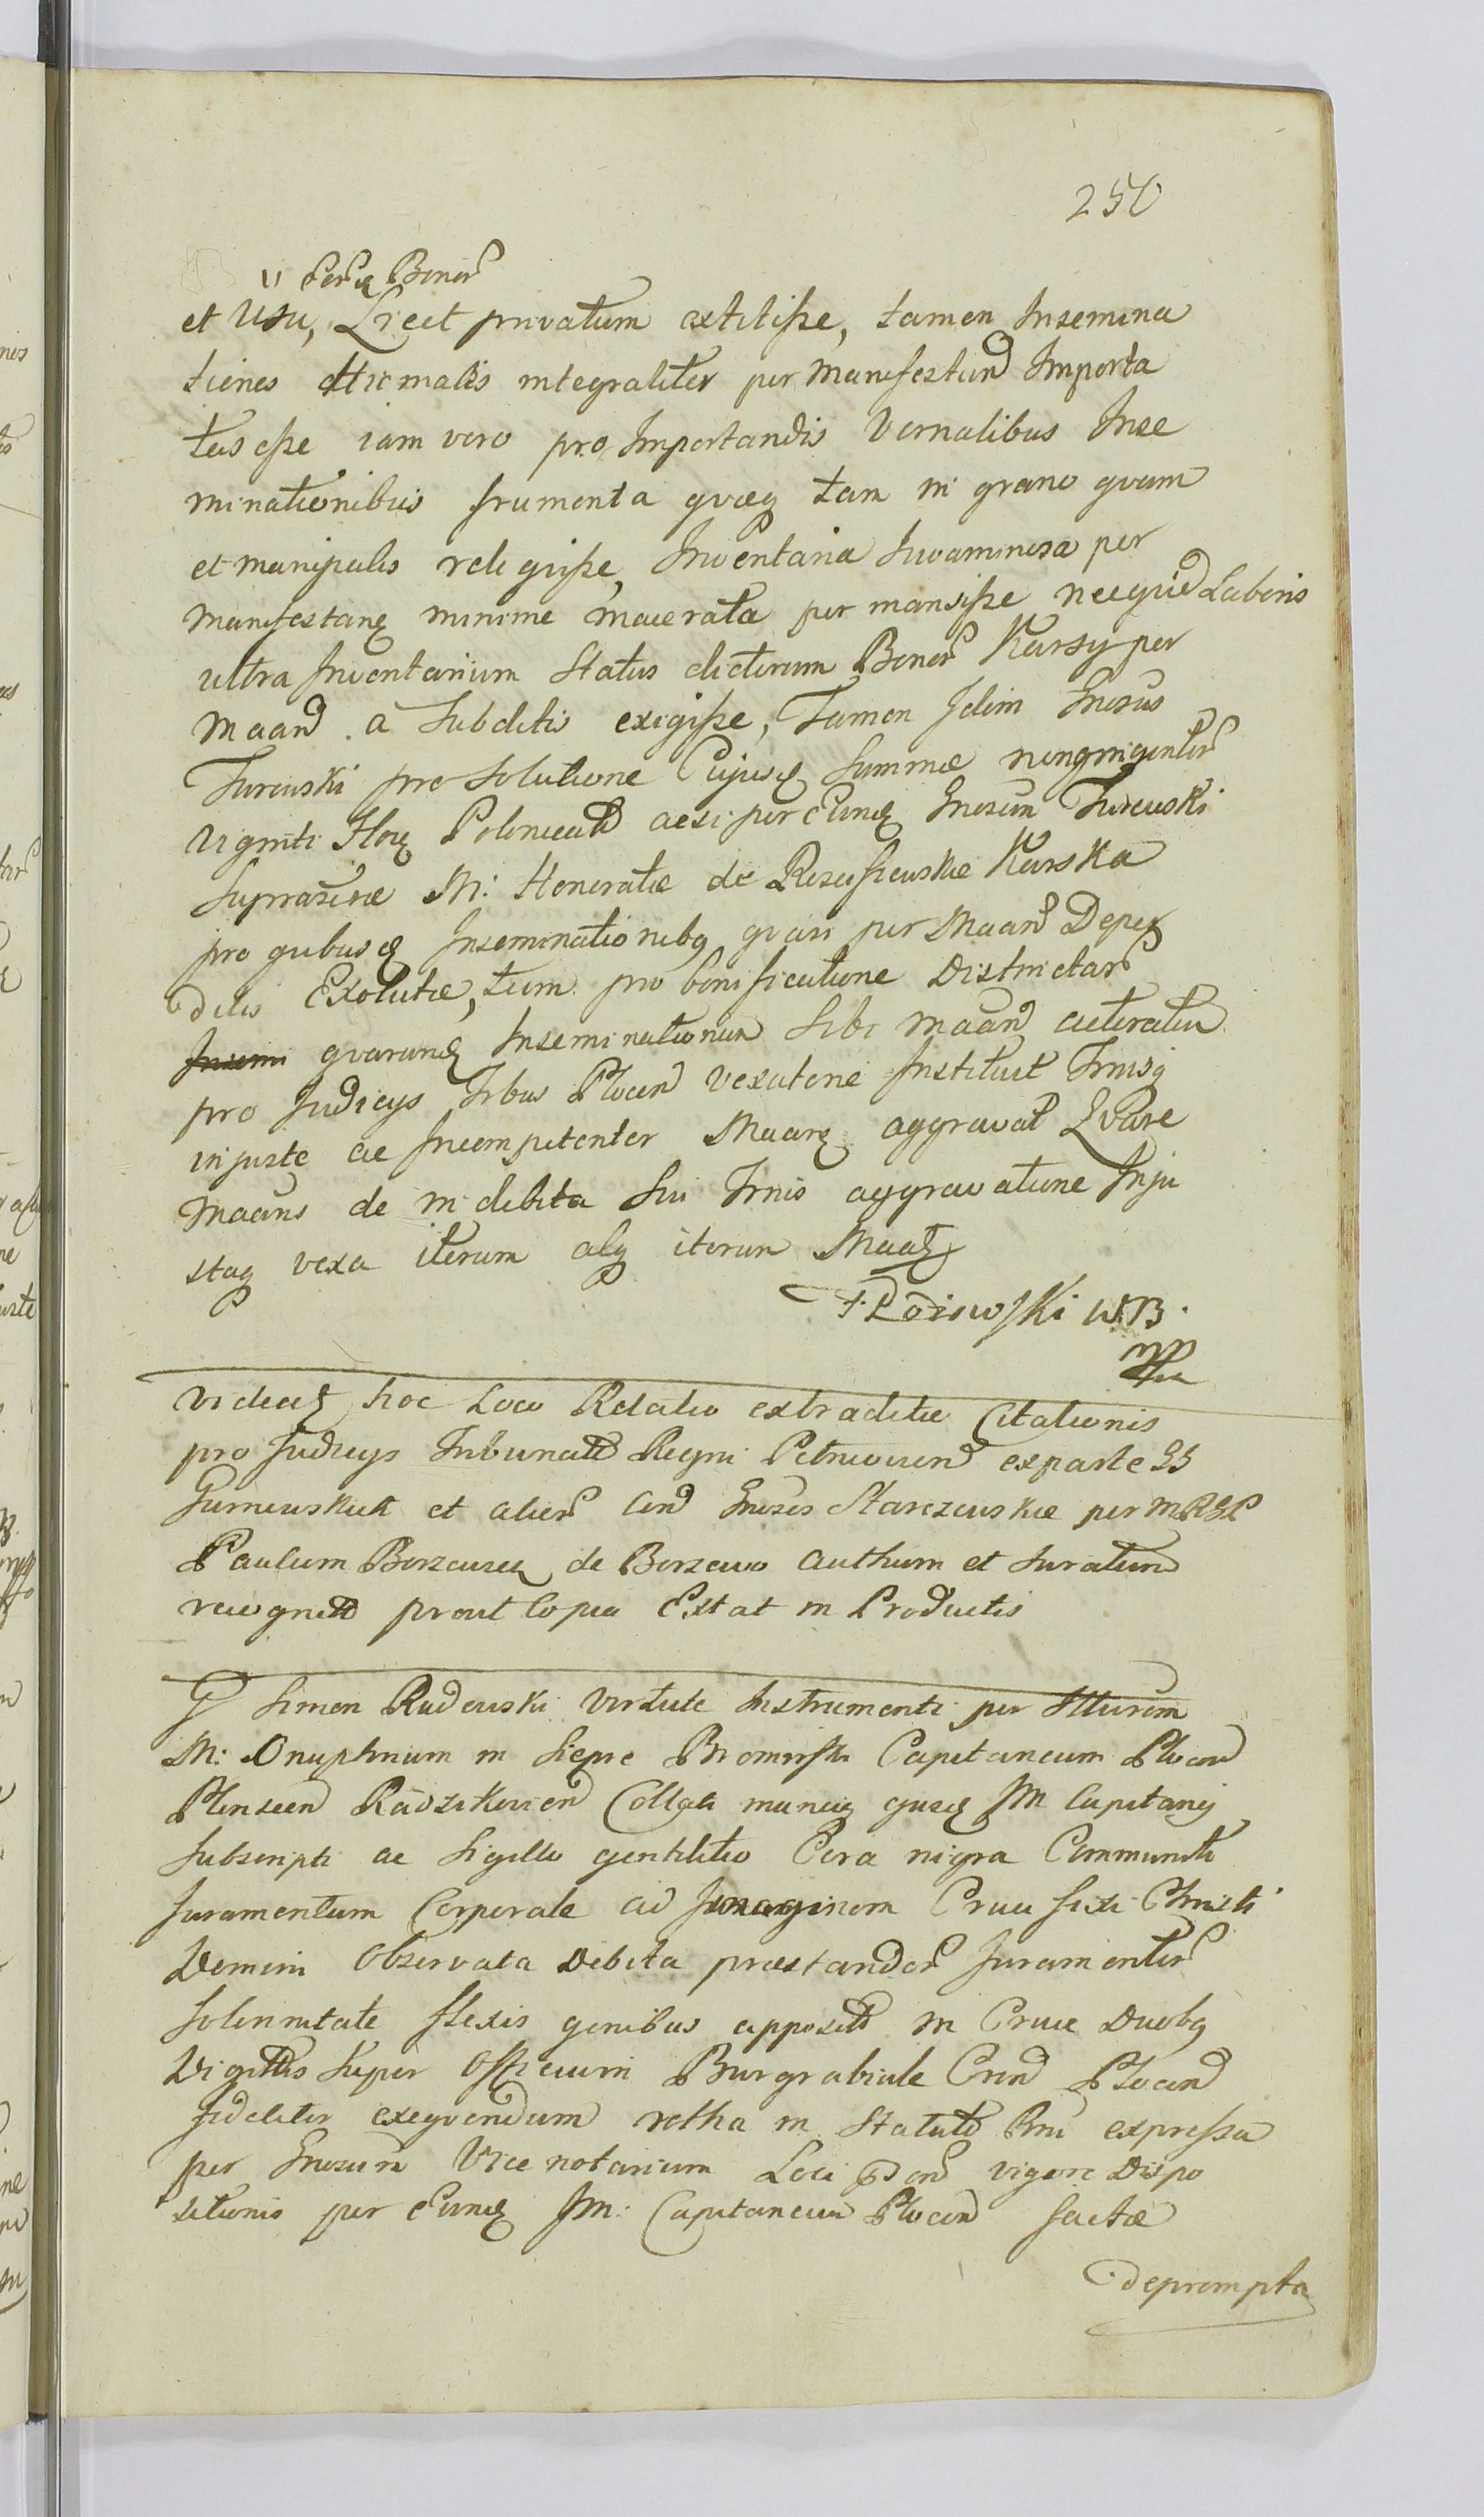 250
eorq Bonor
et Usu, Licet privatum extitisse, tamen Insemina
tiones Hiemales integraliter per Manifestand Importa
tas esse iam vero pro Importandis Vernalibus Inse
minationibus frumenta quæq tam in grano quam
et manipulis reliquisse, Inventaria Iuvaminosa per
Manifestanq minime macerata permansisse necquid Laboris
ultra Inventarium Status dictorum Bonor Karsy per
Maand a Subditis exigisse, Tamen Idem Gnosus
Turowski pro Solutione Cujusd Summæ nongingentor
viginti Flor Polonicaliu acsi per Eund Gnosum Turowski
Suprascriæ M: Honoratæ de Karska
pro quibusd Inseminationibq quasi per Maand Deper
ditis Exolutæ, tum pro bonificatione Districtar
quarund Inseminationum Sibi Maand
pro Judicys Tribus Plocen vexatone Instituit Trnisq
injuste ac Incompetenter Maanq aggravat Qvare
Maans de indebita Sui Trnis aggravatione Inju
staq vexa iterum atq iterum Maatr
W.B.
Videatr hoc Loco Relatio extraditæ Citationis
pro Judicys Tribunalis Regni Petricovien exparte GG
et alior Gnosos per MRGL
Paulum de Borzewo Authum et Juratum
recognit prout Copia Extat in Productis
G Simon Radowski Virtute Instrumenti per Illurem
M: Onuphrium in Siepre Bromirski Capitaneum Plocen
Radzikovien Collati manuq ejusd JM Capitanei
Subscripti ac Sigillo gentilitio Cera nigra Communiti
Juramentum Corporale ad Imaginem Crucifixi Christi
Domini Observata Debita præstandor Juramentor
Solennitate flexis genibus appositis in Cruce Duobq
Digitis Super Officium Burgrabiale Cren Plocen
fideliter exequendum retha in Statuto Rni expressa
per Gnosum Vice notarium Loci vigore Dispo
sitionis per Eund JM: Capitaneum Plocen factæ
deprompta